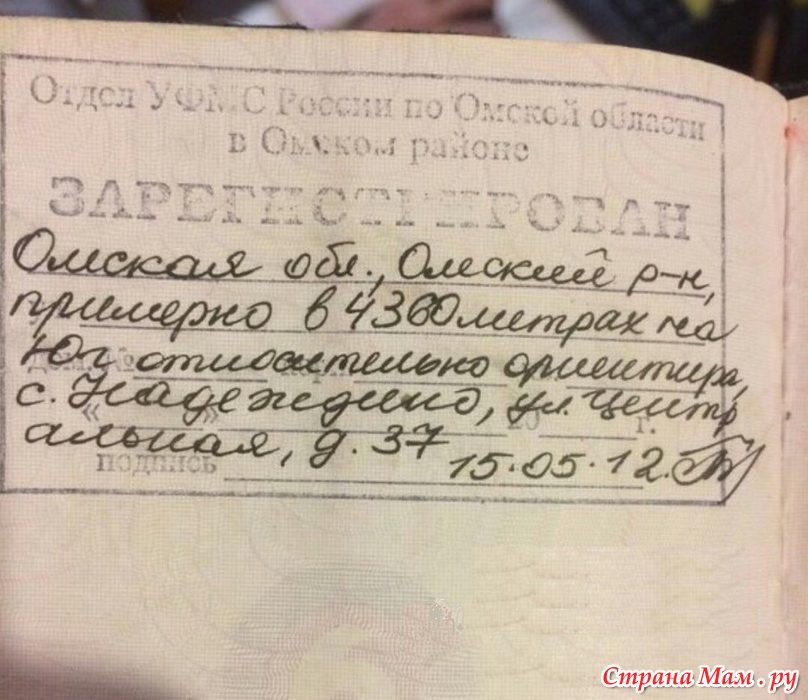 Отдел УФМС России по Омской области
в Омском районе
ЗАРЕГИСТРИРОВАН
Омская обл., Омский р-н,
примерно в 4360 метрах на
Юг относительно ориентира,
с. Надеждино, ул. Центр
альная, д. 37
15.05.12.
подпись
Страна Мам.ру